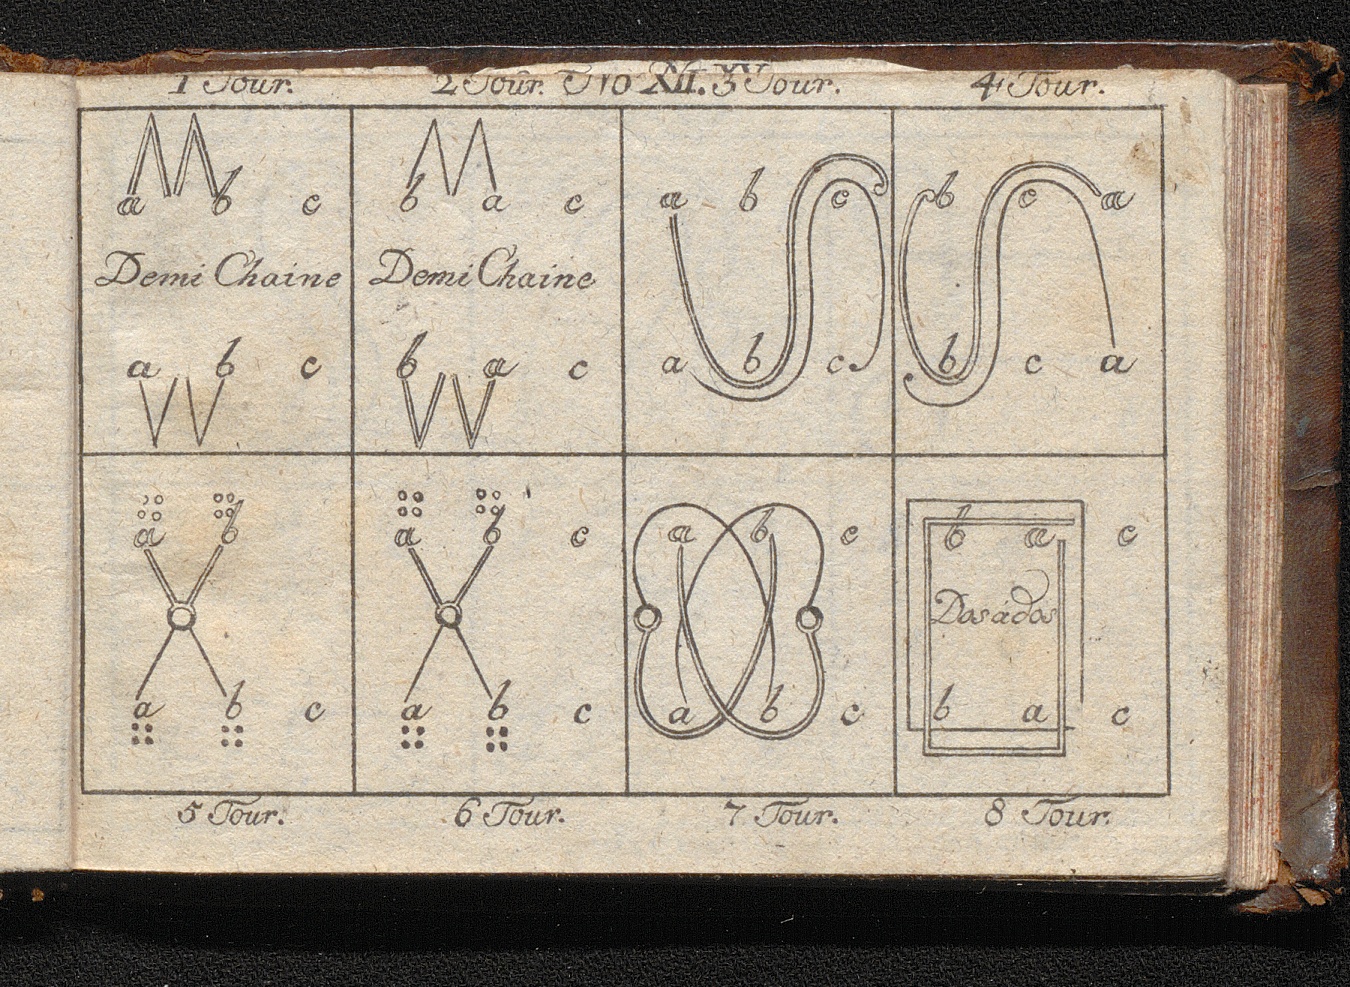 1 Tour. 2 Tour. No XII. XV. 3 Tour. 4 Tour.
a b c
Demi Chaine
a b c
b a c
Demi Chaine
b a c
a b c
a b c
b c a
b c a
a b c
a b c
a b c
a b c
a b c
a b c
b a c
Dos à dos
b a c
5 Tour. 6 Tour. 7 Tour. 8 Tour.